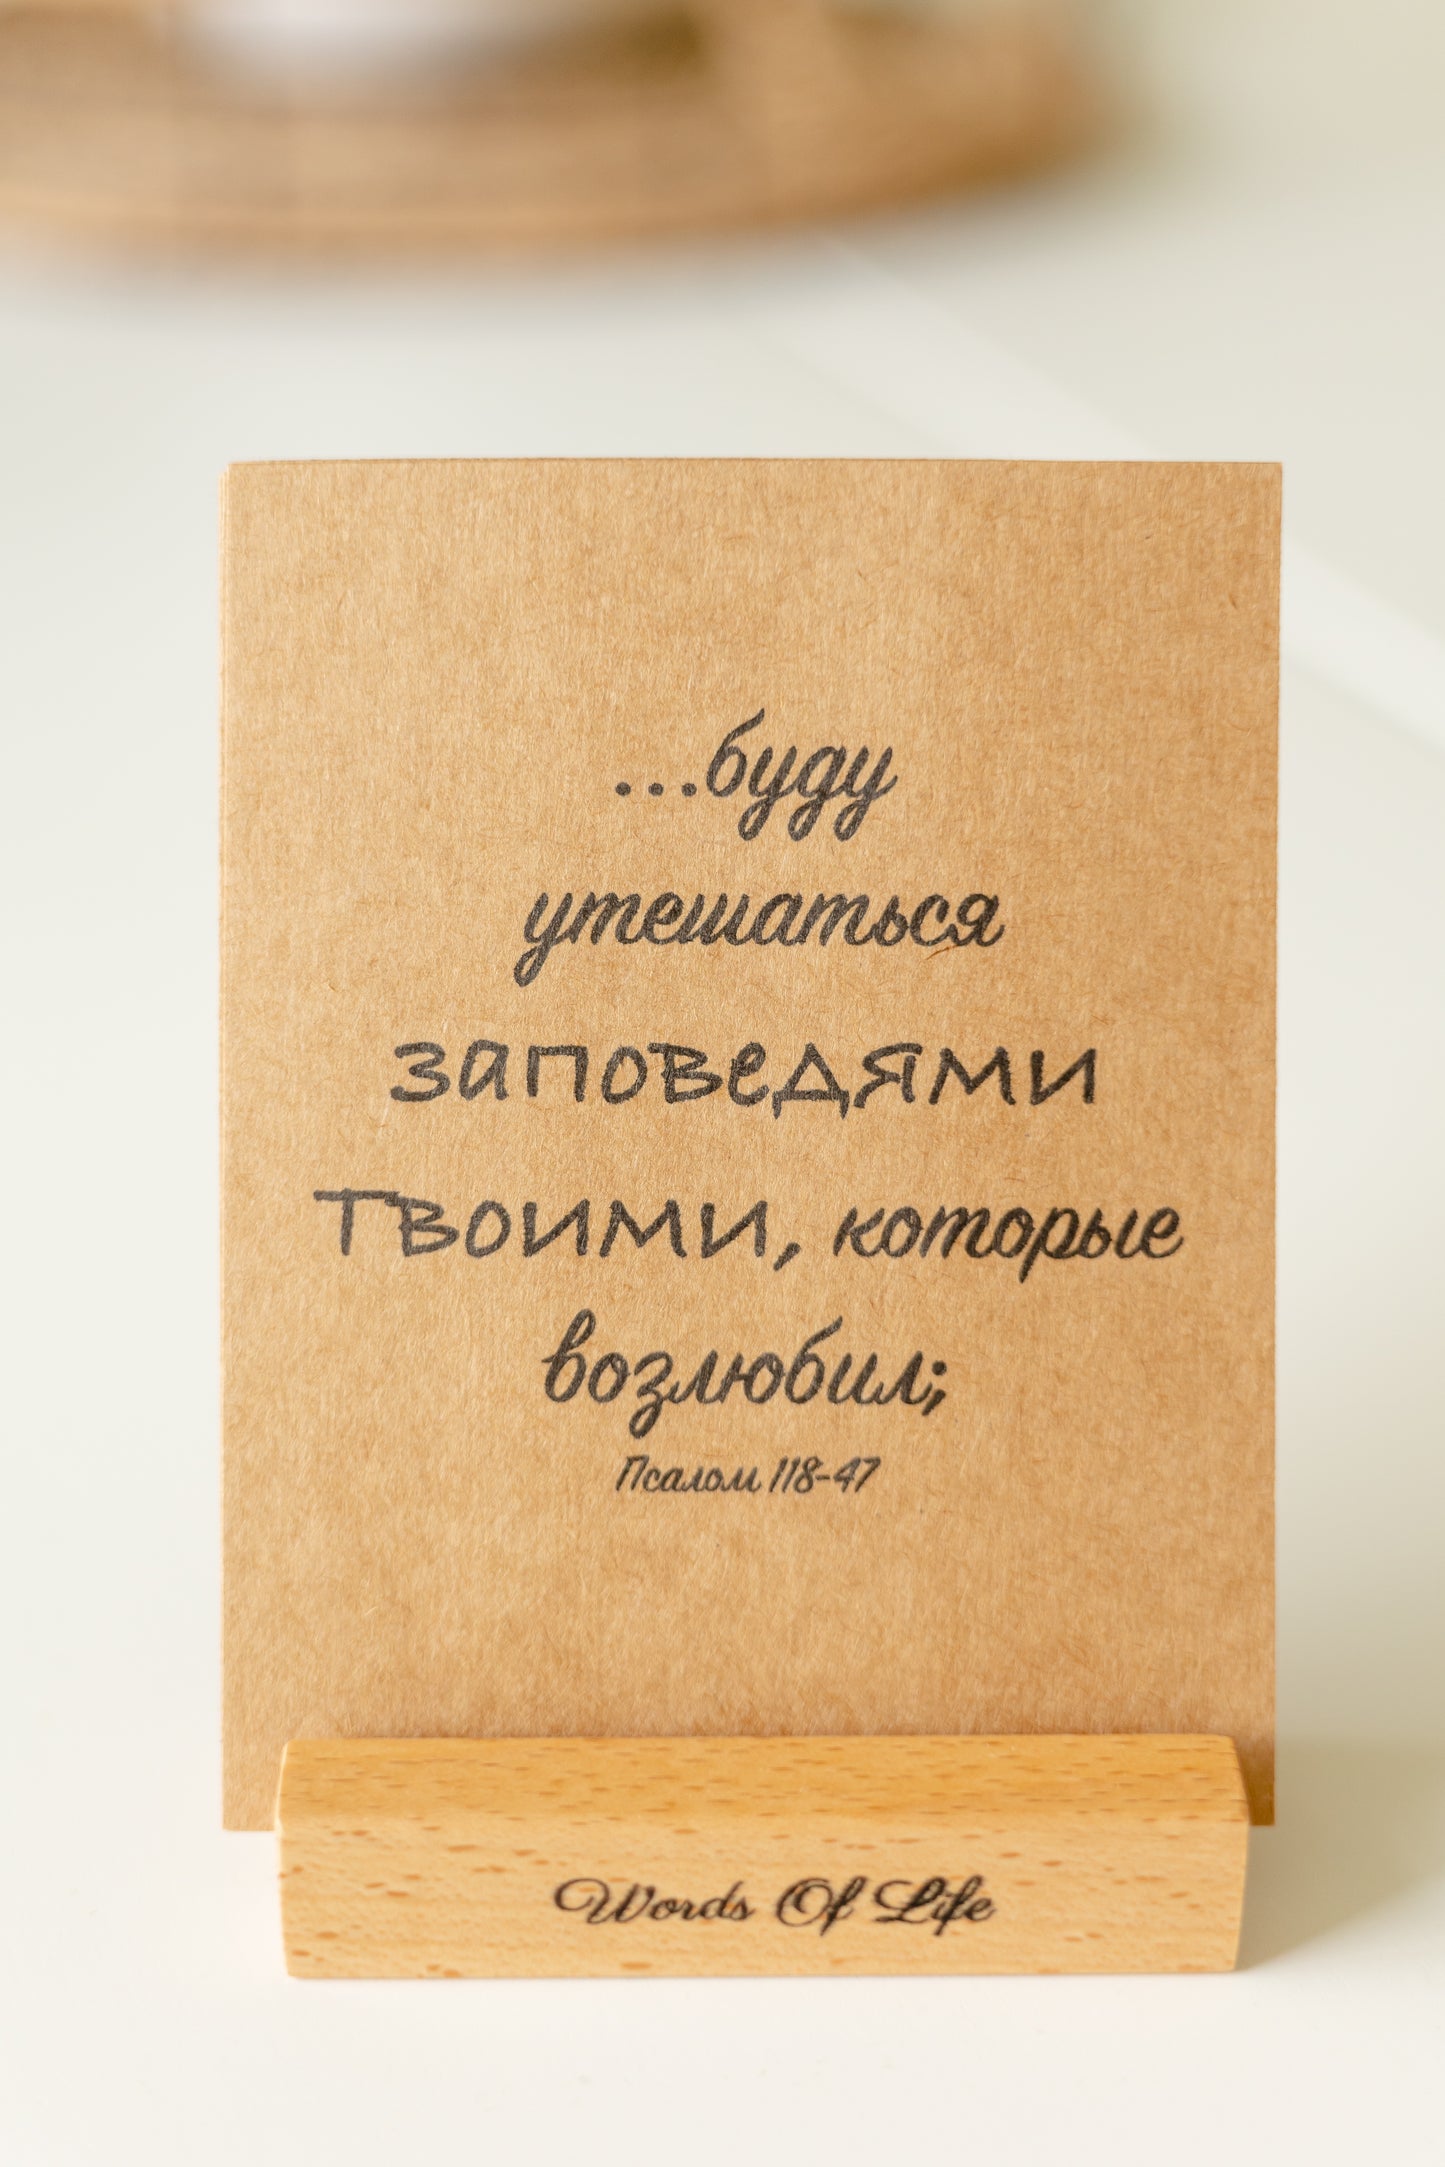 ...буду
утешаться
заповедями
Твоими, которые
возлюбил;
Псалом 118-47
Words Of Life